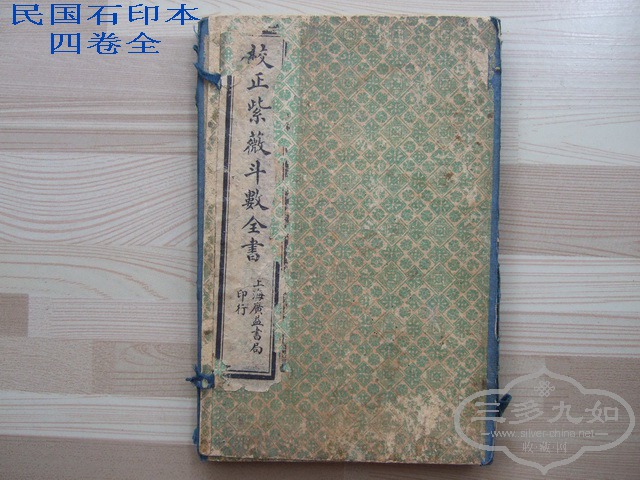 民国石印本
四卷全
校正紫薇斗數全書
上海廣益書局
印行
三多九如
www.silver-china.net
收藏网